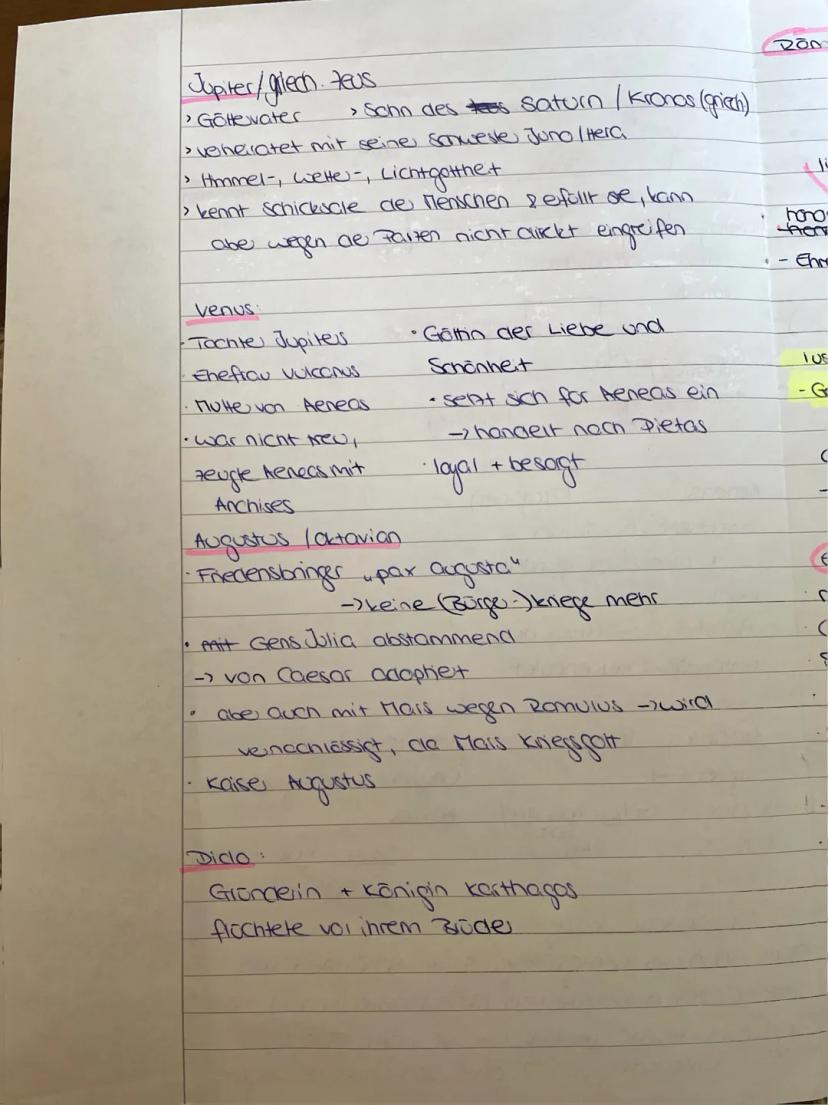 Jupiter/griech. Zeus
> Göttervater > Sohn des Saturn / Kronos (griech)
> verheiratet mit seiner Schwester Juno/Hera
> Himmel-, Wetter-, Lichtgottheit
> kennt Schicksale der Menschen & erfüllt sie, kann
aber wegen der Parzen nicht direkt eingreifen
Venus:
· Tochter Jupiters
· Ehefrau Vulcanus
· Mutter von Aeneas
· war nicht treu,
zeugte Aeneas mit
Anchises
· Göttin der Liebe und
Schönheit
· setzt sich für Aeneas ein
-> handelt nach Pietas
· loyal + besorgt
Augustus / Oktavian
· Friedensbringer „pax Augusta"
-> keine (Bürger-)kriege mehr
· mit Gens Julia abstammend
-> von Caesar adoptiert
· aber auch mit Mars wegen Romulus -> wird
vernachlässigt, da Mars Kriegsgott
· Kaiser Augustus
Dido:
Gründerin + Königin Karthagos
flüchtete vor ihrem Bruder
Röm
hono
- Ehr
ius
- G